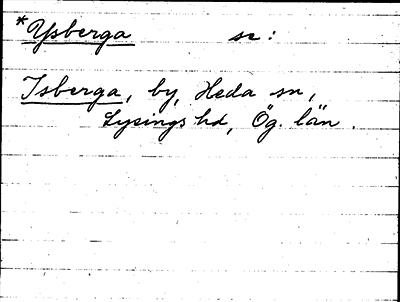 *Ysberga se:
Isberga, by, Heda sn,
Lysings hd, Ög. län.